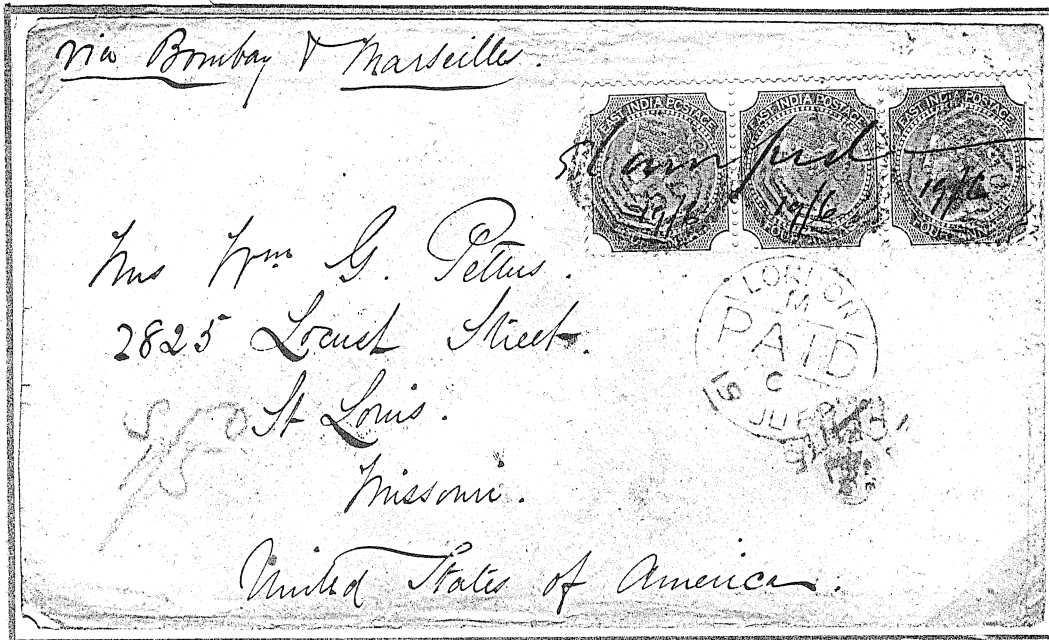 via Bombay & Marseilles.
EAST INDIA POSTAGE EAST INDIA POSTAGE EAST INDIA POSTAGE
Stamped
19/6 19/6 19/6
Mrs Wm G. Pettus.
2825 Locust Street.
St Louis.
Missouri.
United States of America.
LONDON
PAID
C